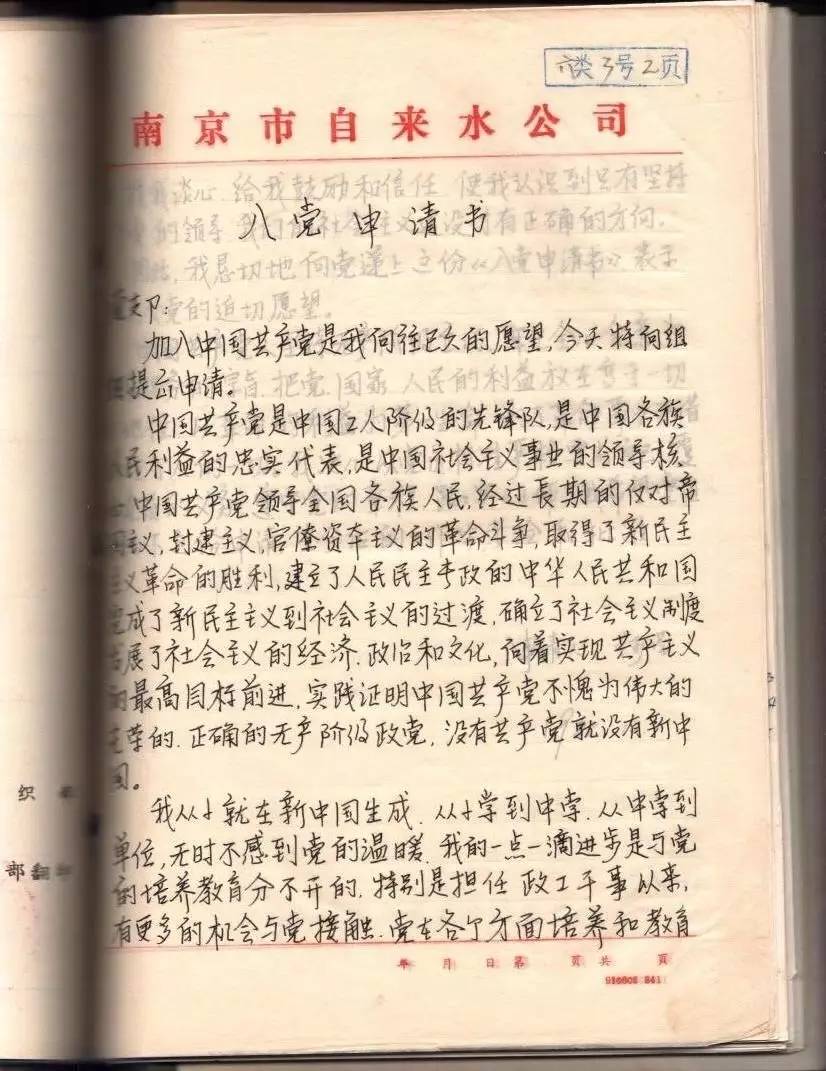 六类3号2页
南京市自来水公司
入党申请书
党支卩:
加入中国共产党是我向往已久的愿望,今天特向组
织提出申请。
中国共产党是中国工人阶级的先锋队,是中国各族
人民利益的忠实代表,是中国社会主义事业的领导核
心.中国共产党领导全国各族人民,经过长期的反对帝
国主义,封建主义,官僚资本主义的革命斗争,取得了新民主
主义革命的胜利,建立了人民民主专政的中华人民共和国
完成了新民主主义到社会主义的过渡,确立了社会主义制度
发展了社会主义的经济.政治和文化,向着实现共产主义
的最高目标前进,实践证明中国共产党不愧为伟大的
光荣的.正确的无产阶级政党,没有共产党就没有新中
国。
我从小就在新中国生成.从小学到中学.从中学到
单位,无时不感到党的温暖.我的一点一滴进步是与党
的培养教育分不开的.特别是担任政工干事以来,
有更多的机会与党接触.党在各个方面培养和教育
年 月 日 第 页 共 页
织
部翻
给我鼓励和信任 使我认识到只有坚持
的领导
有正确的方向。
我恳切地向党递上这份《入党申请书》.表示
党的迫切愿望。
把党.国家 人民的利益放在高于一切